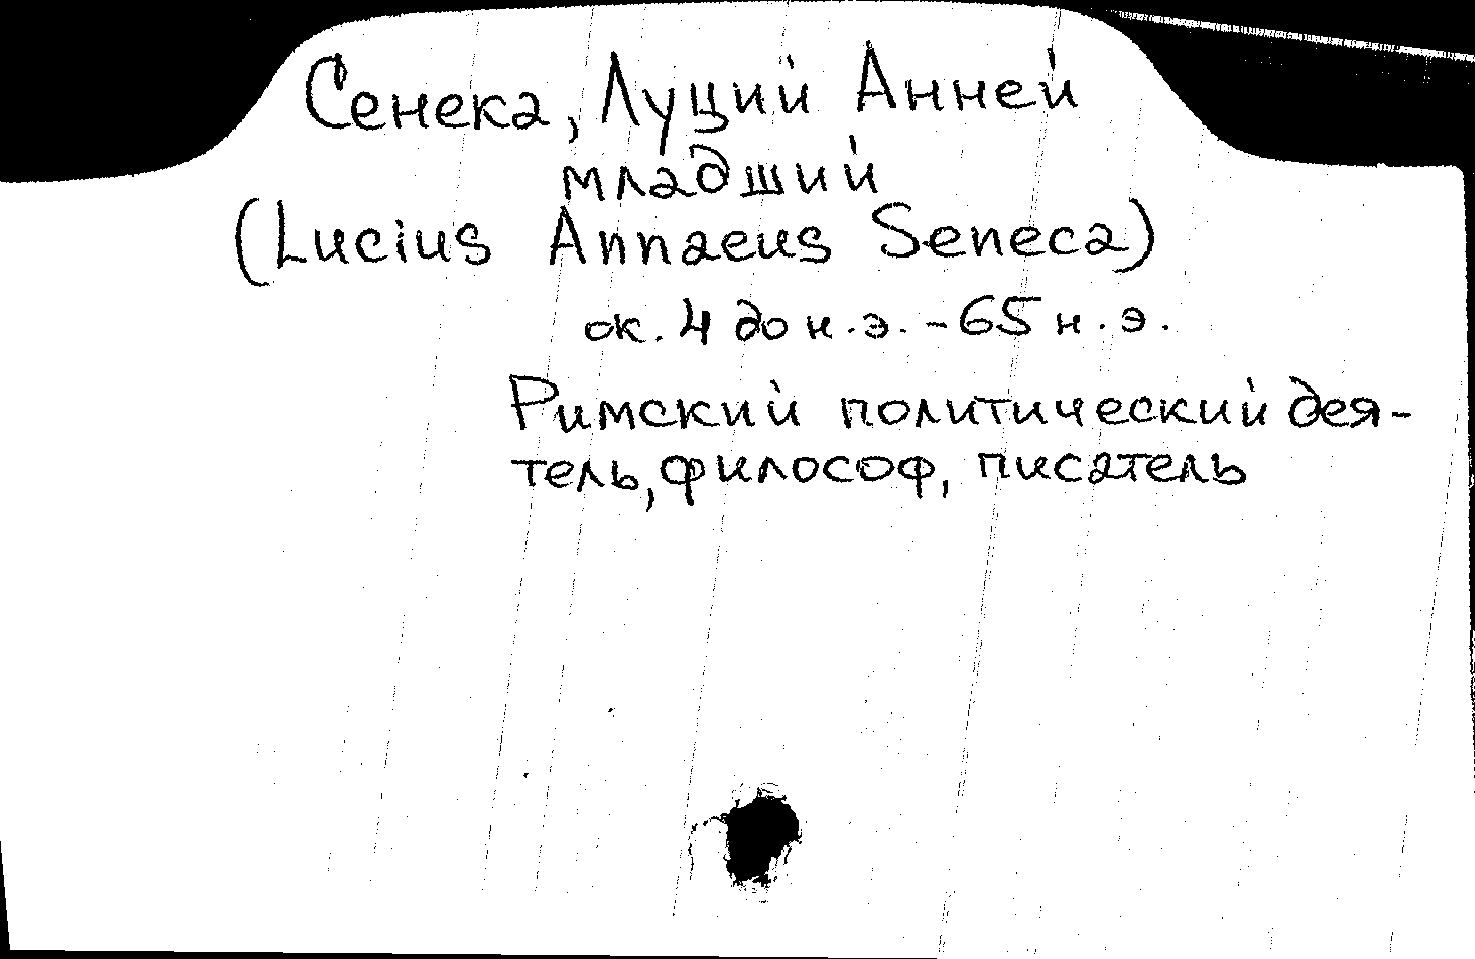 Сенека, Луций Анней
младший
(Lucius Annaeus Seneca)
ок. 4 до н.э. - 65 н.э.
Римский политический дея-
тель, философ, писатель